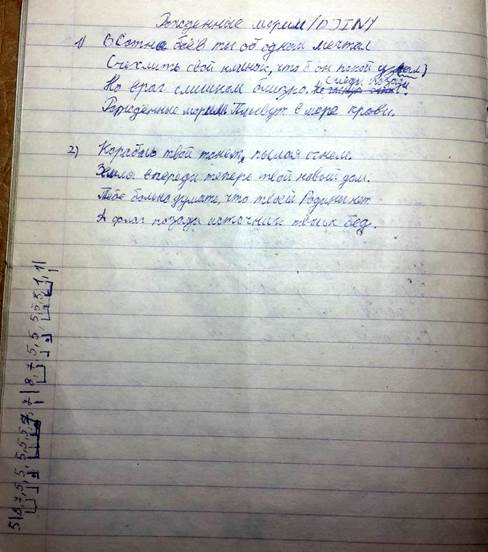 Рожденные морем /DJINY
1) В Сотне боёв ты об одном мечтал
Счехлить свой клинок, что б он покой узнал)
Но враг слишком близро. Следи позади
Рождённые морем Плывут в море крови.
2) Корабль твой тонет, пылая огнем.
Земля впереди теперь твой новый дом.
Тебе больно думать, что твоей Родины нет
А флаг позади источник твоих бед.